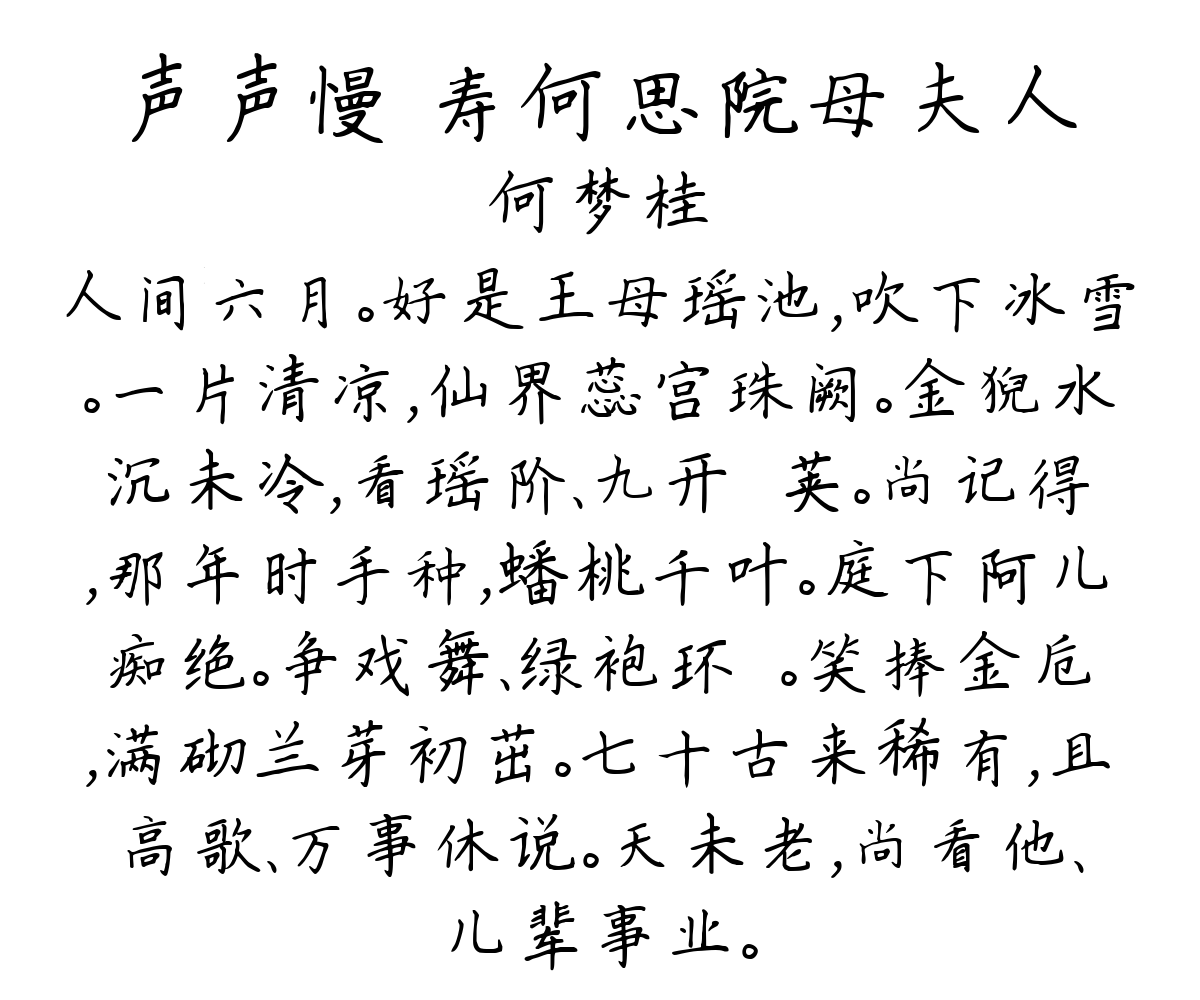 声声慢 寿何思院母夫人
何梦桂
人间六月。好是王母瑶池,吹下冰雪
。一片清凉,仙界蕊宫珠阙。金猊水
沉未冷,看瑶阶、九开 荚。尚记得
,那年时手种,蟠桃千叶。庭下阿儿
痴绝。争戏舞、绿袍环 。笑捧金卮
,满砌兰芽初茁。七十古来稀有,且
高歌、万事休说。天未老,尚看他、
儿辈事业。